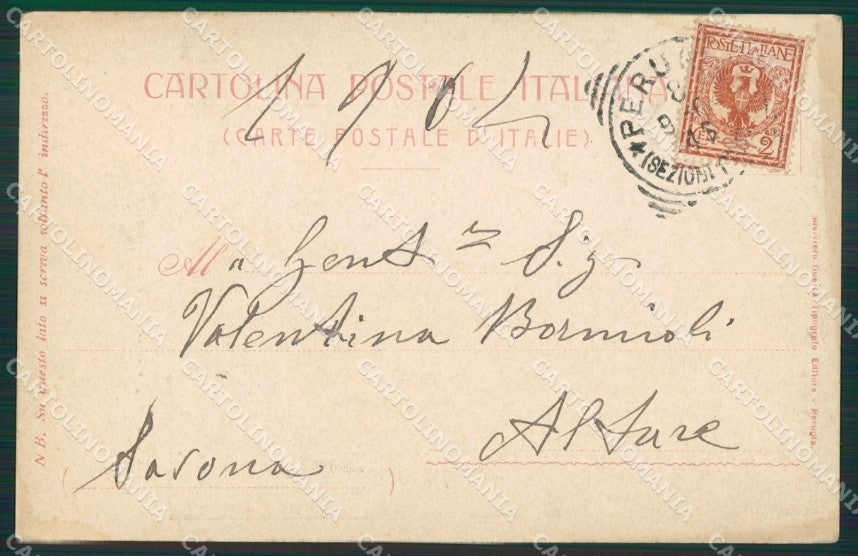 CARTOLINA POSTALE ITALIANA
(CARTE POSTALE D'ITALIE)
1904
POSTE ITALIANE
CENT. 2
PERU
(SEZIONI
Alla Gent.ma Sig.
Valentina Bormioli
Altare
Savona
N B. Su questo lato si scriva soltanto l' indirizzo.
Guerra Tipografo Editore - Perugia.
CARTOLINOMANIA